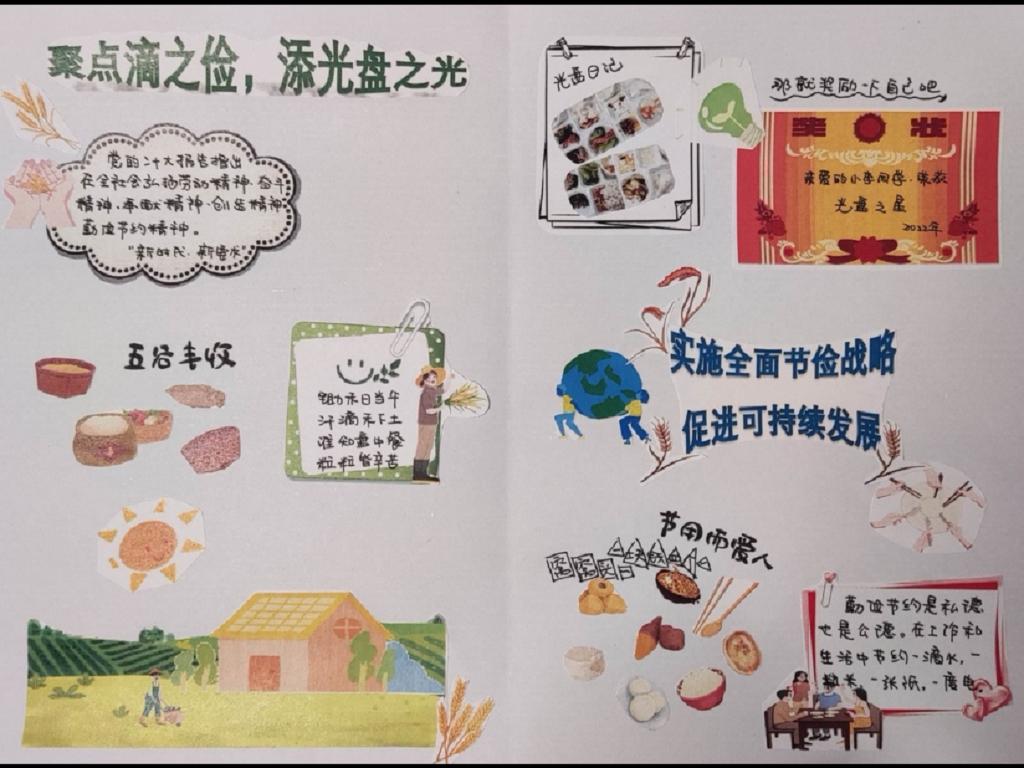 聚点滴之俭，添光盘之光
党的二十大报告提出
在全社会弘扬劳动精神·奋斗
精神·奉献精神·创造精神
勤俭节约精神。
"新时代·新春水"
五谷丰收
锄禾日当午
汗滴禾下土
谁知盘中餐
粒粒皆辛苦
光盘日记
那就奖励一下自己吧
奖状
亲爱的小李同学·荣获
光盘之星
2022年
实施全面节俭战略
促进可持续发展
节用而爱人
勤俭节约是私德
也是公德。在工作和
生活中节约一滴水，一
粒米，一张纸。一度电